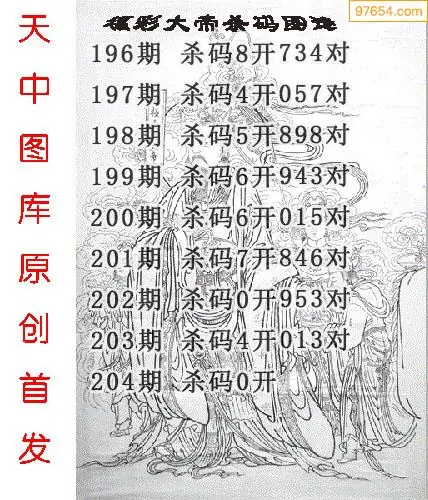 97654.com
福彩大帝杀码图
196期 杀码8开734对
197期 杀码4开057对
198期 杀码5开898对
199期 杀码6开943对
200期 杀码6开015对
201期 杀码7开846对
202期 杀码0开953对
203期 杀码4开013对
204期 杀码0开
天中图库原创首发